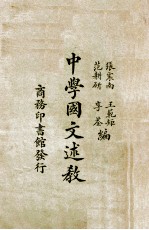 張震南 王範矩
范耕研 李荃 編
中學國文述教
商務印書館發行